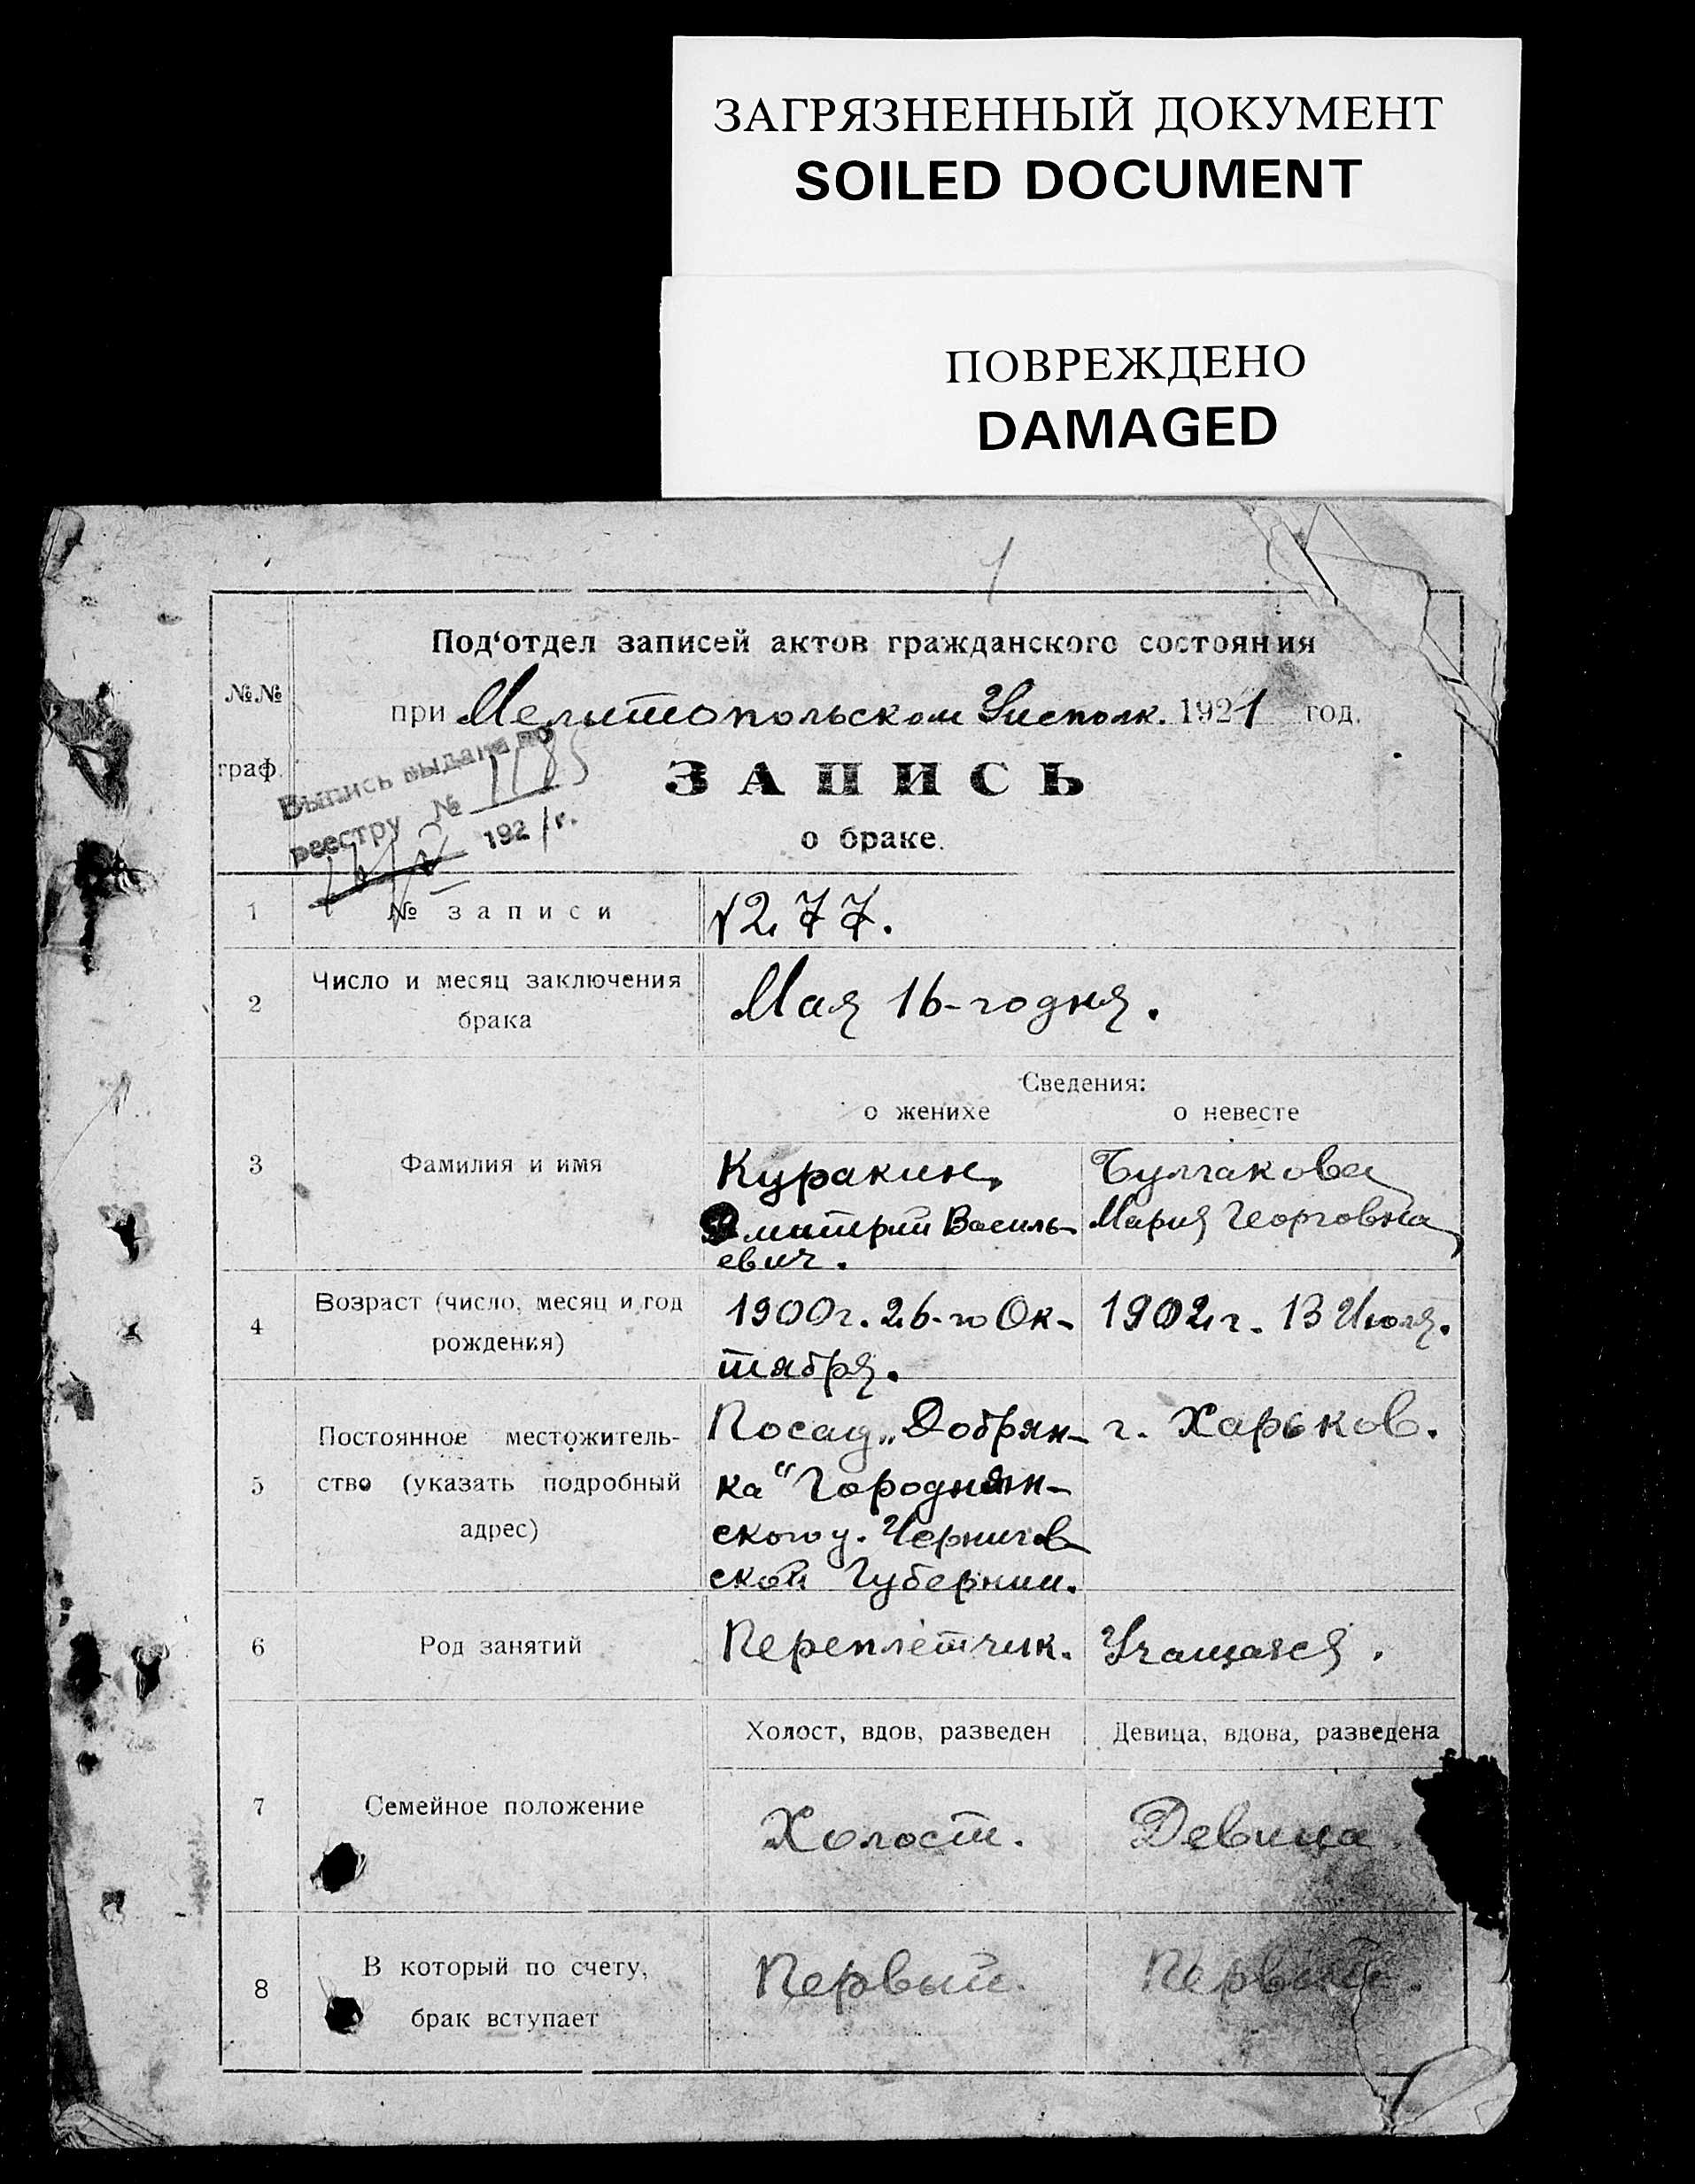 ЗАГРЯЗНЕННЫЙ ДОКУМЕНТ
SOILED DOCUMENT
ПОВРЕЖДЕНО
DAMAGED
1
№№ граф.
Под‘отдел записей актов гражданского состояния
при Мелитопольском Уисполк. 1921 год.
Выпись выдана по
реестру № 1185
1921 г.
ЗАПИСЬ
о браке.
1 № записи 277.
2 Число и месяц заключения
брака
Мая 16-го дня.
Сведения:
о женихе о невесте
3 Фамилия и имя
Куракин, Булгакова
Дмитрий Василь- Мария Георговна
евич.
4 Возраст (число, месяц и год
рождения)
1900 г. 26-го Ок- 1902 г. 13 Июля.
тября.
5 Постоянное местожитель-
ство (указать подробный
адрес)
Посад „Добрян- г. Харьков.
ка“ Городнян-
ского у. Чернигов
ской Губернии.
6 Род занятий Переплётчик. Учащаяся.
Холост, вдов, разведен Девица, вдова, разведена
7 Семейное положение
Холост. Девица.
8 В который по счету,
брак вступает
Первый. Первый.